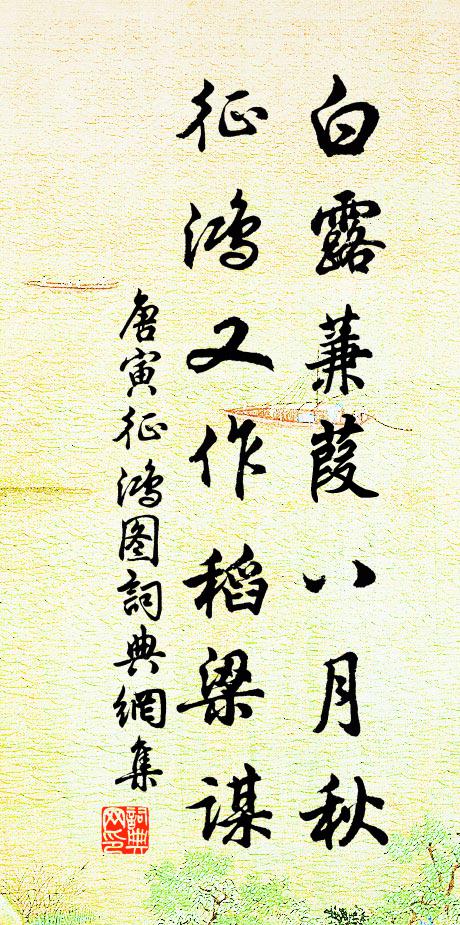 白露蒹葭八月秋
征鴻又作稻粱謀
唐寅征鴻图詞典網集
詞典
网印